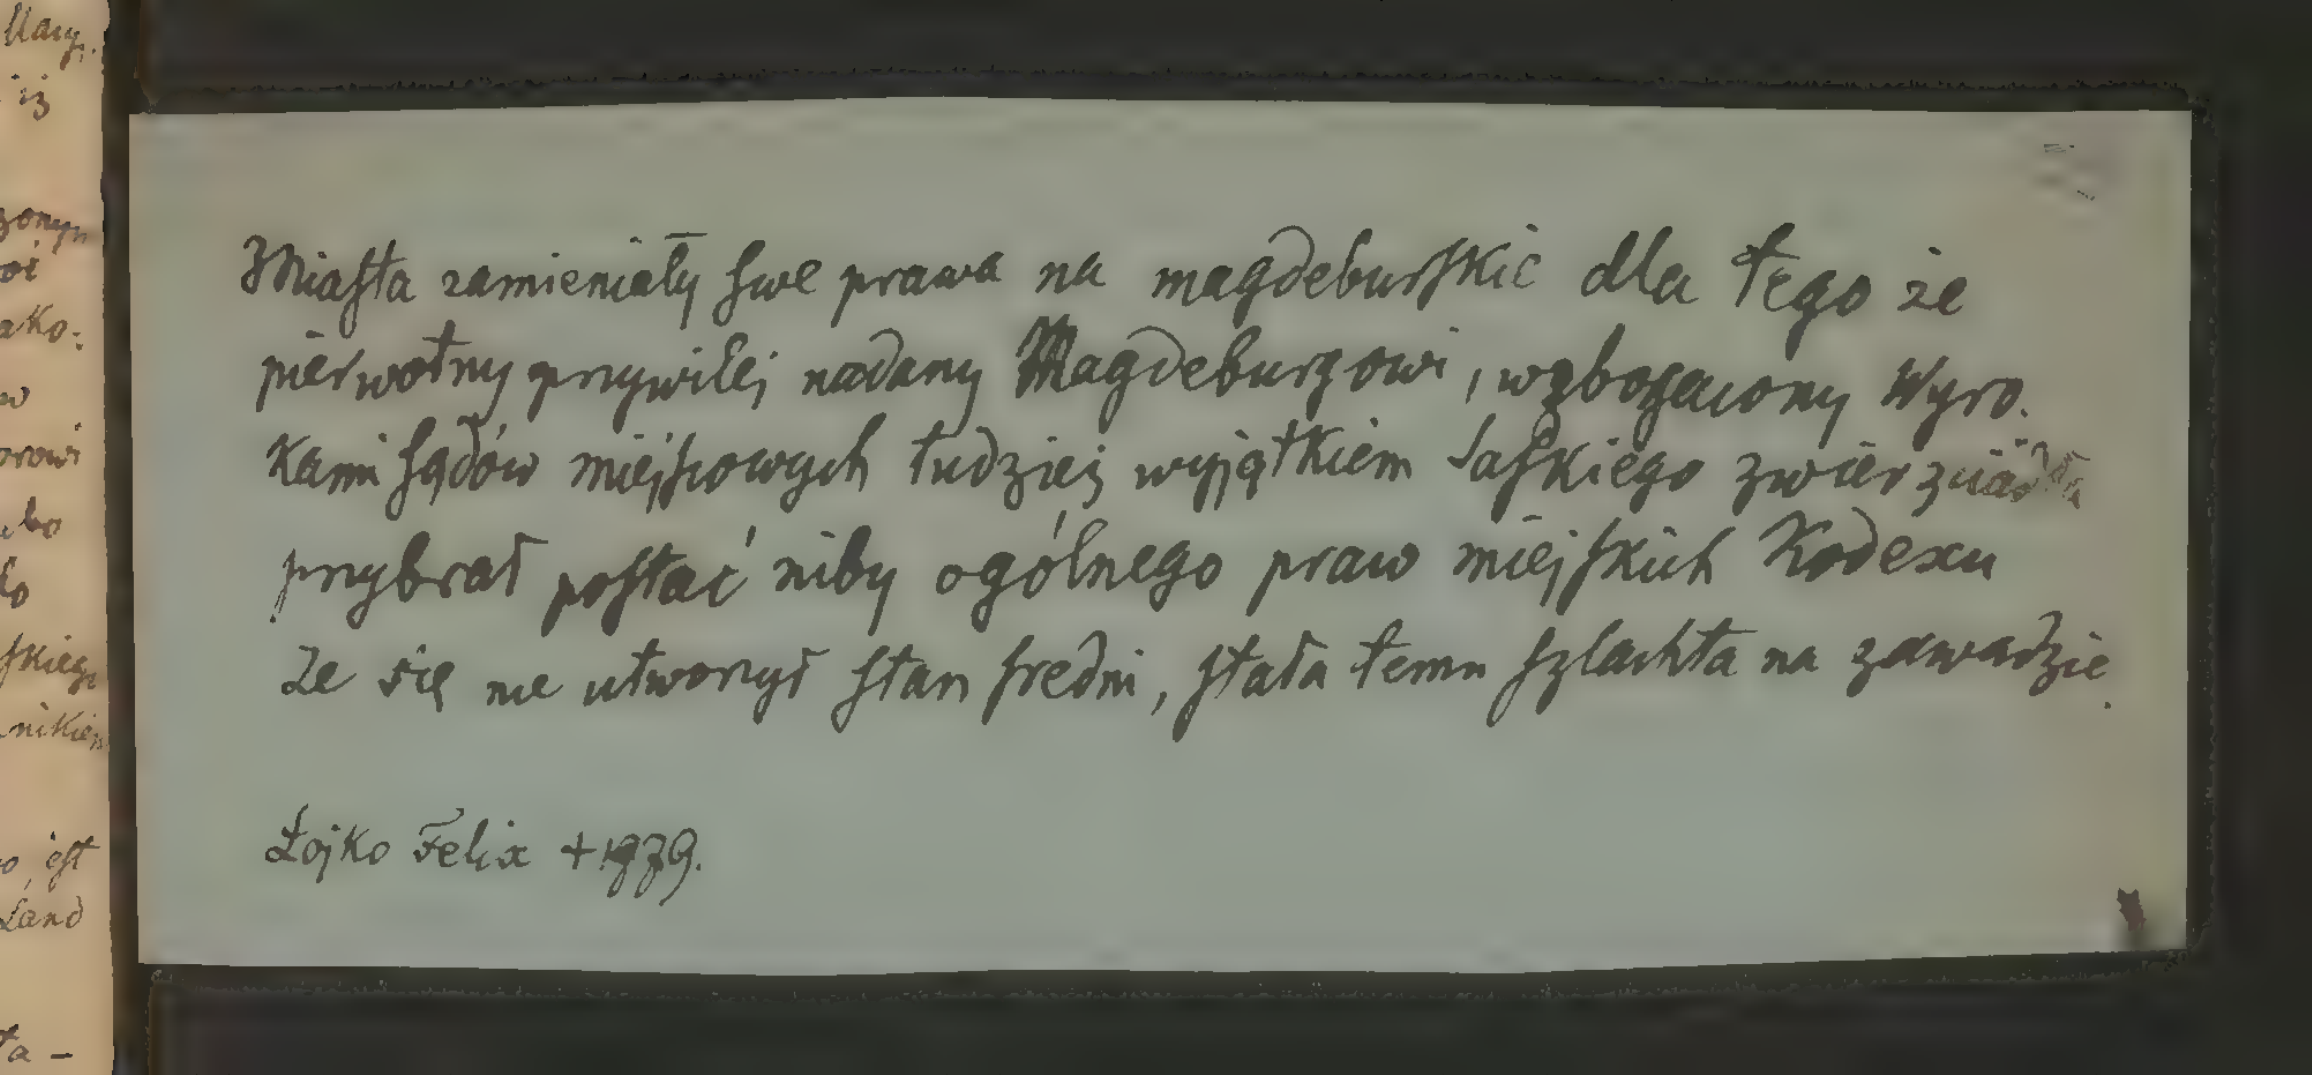 Mary.
iż
zonym
oi
ako:
w
orowi
bo
do
skieg
nikiem
o, est
Land
ta –
Miasta zamieniały swe prawa na magdeburskie dla tego że
pierwotny przywilej nadany Magdeburgowi, wzbogacony Wyro.
kami sądów miejscowych tudzież wyjątkiem Saskiego zwierzciadła
przybrał postać niby ogólnego praw miejskich Kodexu
Że się nie utworzył stan sredni, stała temu szlachta na zawadzie.
Łojko Felix + 1779.